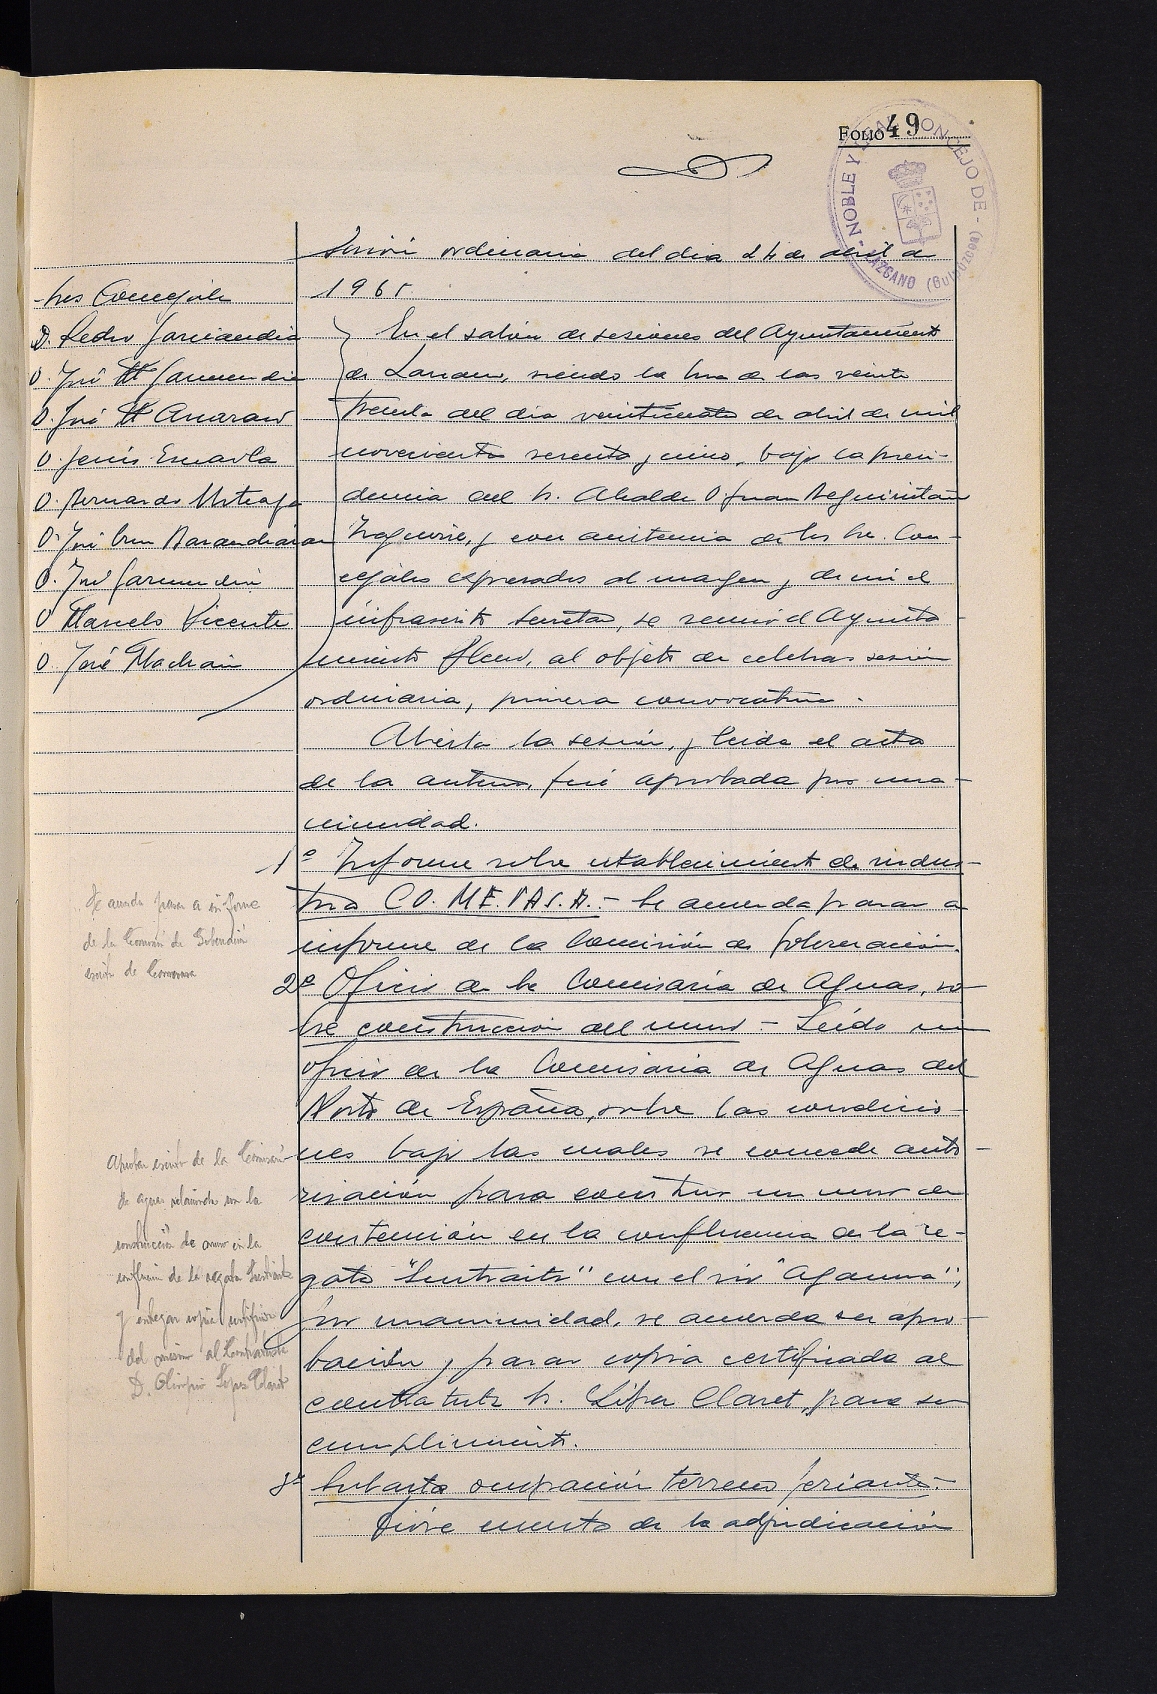 FOLIO 49
NOBLE Y LEAL CONCEJO DE LAZCANO (Guipúzcoa)
Sesión ordinaria del dia 24 de abril de
1965
Sres Concejales
D. Pedro Garciandia
D. José Mª Garmendia
D. José Mª
D. Jesús
D. Bernardo Urteaga
D. José Barandiaran
D. José Garmendia
D. Marcelo Vicente
D. José
En el salón de sesiones del Ayuntamiento
de Lazcano, siendo la hora de las veinte
treinta del dia veinticuatro de abril de mil
novecientos sesenta y cinco, bajo la presi-
dencia del Sr. Alcalde D Juan Aseguinolaza
y con asistencia de los Sres. Con-
cejales expresados al margen, y de mi el
infrascrito Secretario, se reunió el Ayunta-
miento Pleno, al objeto de celebrar sesión
ordinaria, primera convocatoria.
Abierta la sesión, y leida el acta
de la anterior, fué aprobada por una-
nimidad.
1º Informe sobre establecimiento de indus-
tria CO.ME.PAS.A. - Se acuerda pasar a
informe de la Comisión de Gobernación.
2º Oficio de la Comisaría de Aguas, so-
bre construcción del muro - Leído un
oficio de la Comisaria de Aguas del
Norte de España, sobre las condicio-
nes bajo las cuales se concede auto-
rización para construir un muro de
contención en la confluencia de la re-
gata "Sustraitz" con el rio "Agauna";
por unanimidad, se acuerda su apro-
bación y pasar copia certificada al
contratista Sr. López Claret, para su
cumplimiento.
3º Subasta ocupación terrenos feriantes.-
Dióse cuenta de la adjudicación
Se acuerda pasar a informe
de la Comisión de Gobernación
escrito de
Aprobar escrito de la Comisaría
de aguas relacionado con la
construcción de muro en la
confluencia de la regata
y entregar copia certificada
del mismo al Contratista
D. Olimpio López Claret